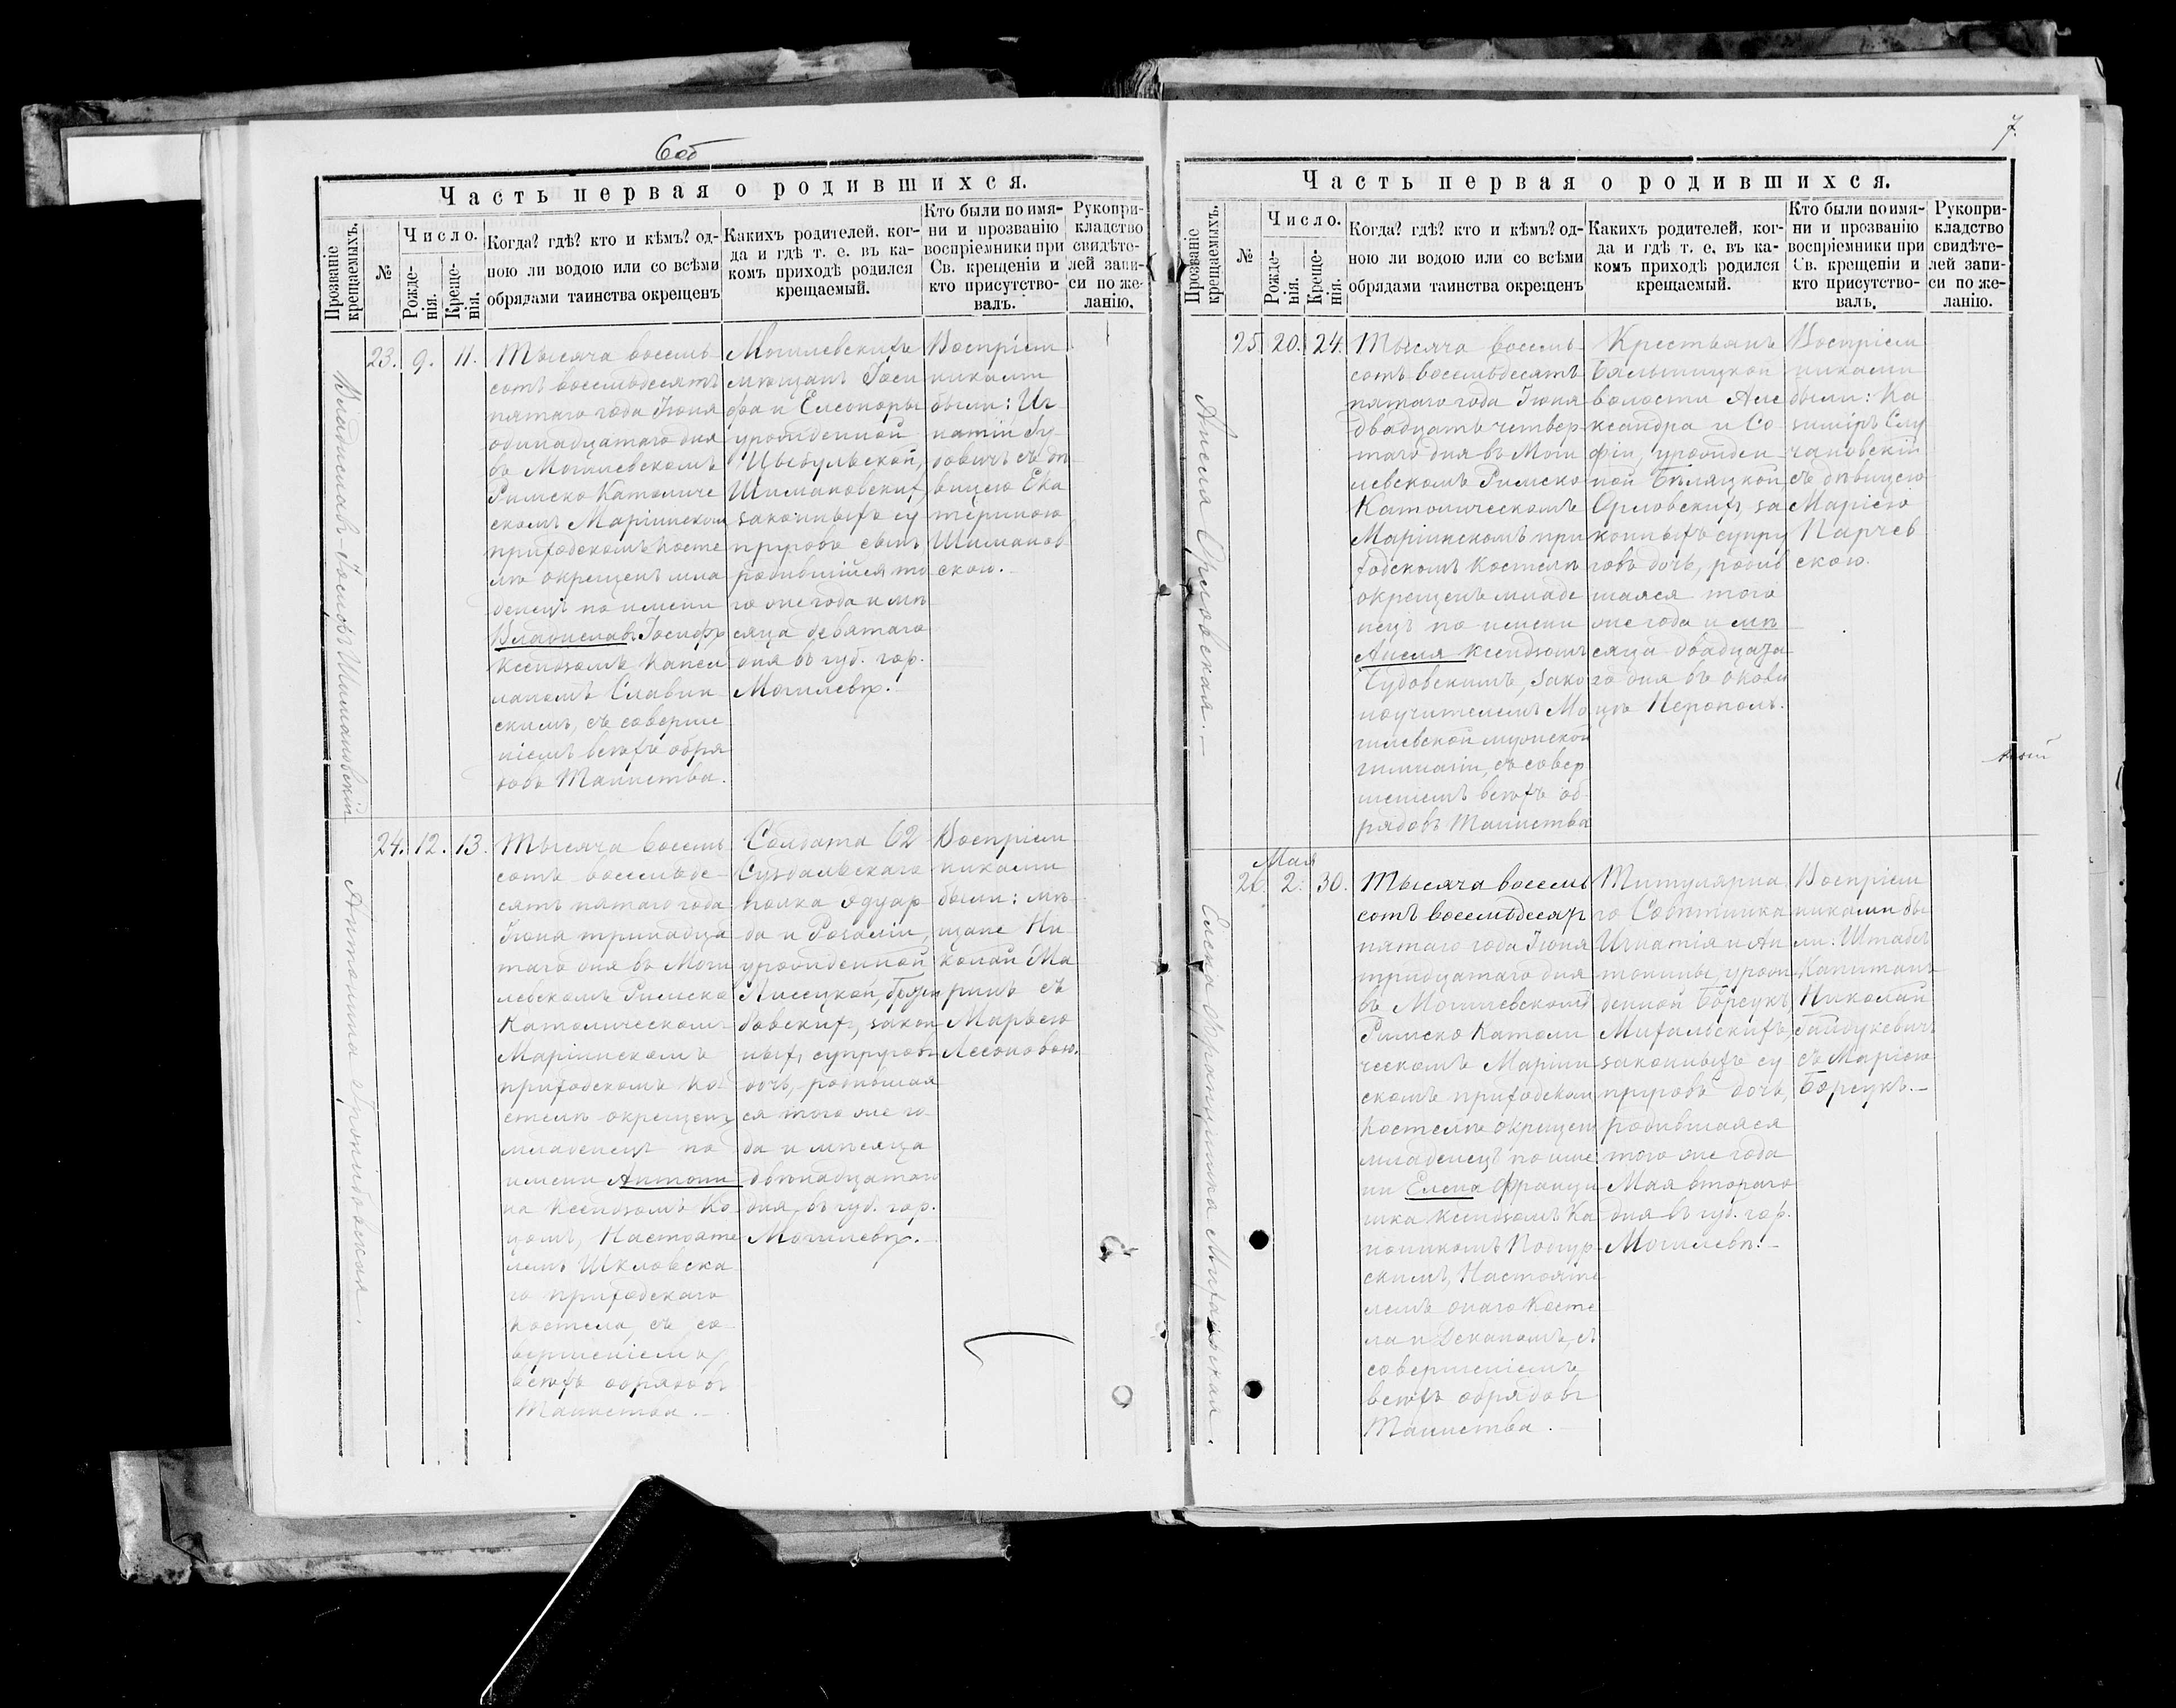 6 об
Часть первая о родившихся.
Прозваніе крещаемыхъ.
№
Число.
Рожде-
нія.
Креще-
нія.
Когда? гдѣ? кто и кѣмъ? од-
ною ли водою или со всѣми
обрядами таинства окрещенъ
Какихъ родителей, ког-
да и гдѣ т. е. въ ка-
комъ приходѣ родился
крещаемый.
Кто были по имя-
ни и прозванію
воспріемники при
Св. крещеніи и
кто присутство-
валъ.
Рукопри-
кладство
свидѣте-
лей запи-
си по же-
ланію.
Владиславъ-Іосифъ Шимановскій
23. 9. 11.
Тысяча восемь
сотъ восемьдесятъ
пятаго года Іюня
одинадцатаго дня
въ Могилевскомъ
Римско Католиче
скомъ Маріинском
приходскомъ косте
лѣ окрещенъ мла
денецъ по имени
Владиславъ Іосифъ
Ксендзомъ Капел
ланомъ Славин
скимъ, съ соверше
ніемъ всѣхъ обря
довъ Таинства.
Могилевскихъ
мѣщанъ Іоси
фа и Елеоноры
урожденной
Цыбульской,
Шимановских,
законныхъ су
пруговъ сынъ
родившійся то
го же года и мѣ
сяца девятаго
дня въ губ. гор.
Могилевѣ.
Воспріем
никами
были: Иг
натій Гу-
довичъ съ дѣ
вицею Ека
териною
Шиманов
скою.
Антонина Бронидовская.
24. 12. 13.
Тысяча восемь
сотъ восемьде-
сятъ пятаго года
Іюня тринадца
таго дня въ Моги
левскомъ Римско
Католическомъ
Маріинскомъ
приходскомъ ко-
стелѣ окрещенъ
младенецъ по
имени Антони
на Ксендзомъ Ко
цомъ, Настояте
лемъ Шкловска
го приходскаго
костела, съ со-
вершеніемъ
всѣхъ обрядовъ
Таинства.
Солдата 62
Суздальскаго
полка Эдуар
да и Розаліи,
урожденной
Лисецкой,
довскихъ, закон
ныхъ супруговъ
дочь, родившая
ся того же го-
да и мѣсяца
двѣнадцатого
дня въ губ. гор.
Могилевѣ.
Воспріем
никами
были: мѣ-
щане Ни
колай Ма
ринъ съ
Марьею
Леоновою.
7.
Часть первая о родившихся.
Прозваніе крещаемыхъ.
№
Число.
Рожде-
нія.
Креще-
нія.
Когда? гдѣ? кто и кѣмъ? од-
ною ли водою или со всѣми
обрядами таинства окрещенъ
Какихъ родителей, ког-
да и гдѣ т. е. въ ка-
комъ приходѣ родился
крещаемый.
Кто были по имя-
ни и прозванію
воспріемники при
Св. крещеніи и
кто присутство-
валъ.
Рукопри-
кладство
свидѣте-
лей запи-
си по же-
ланію.
Анеля Орловская.
25. 20. 24.
Тысяча восемь
сотъ восемьдесятъ
пятаго года Іюня
двадцать четвер
таго дня въ Моги
левскомъ Римско
Католическомъ
Маріинскомъ при
ходскомъ Костелѣ
окрещенъ младе
нецъ по имени
Анеля Ксендзомъ
Гудовскимъ, Зако
ноучителемъ Мо
гилевской мужской
гимназіи, съ совер
шеніемъ всѣхъ об-
рядовъ Таинства
Крестьянъ
Бялыницкой
волости Але
ксандра и Со
фіи, урожден-
ной Бѣляцкой,
Орловскихъ, за
конныхъ супру
говъ дочь, родив
шаяся того
же года и мѣ
сяца двадцата
го дня въ околи
цѣ Нерополь.
Воспріем
никами
были: Ка
зиміръ Слу
чановскій
съ дѣвицею
Маріею
Парчев
скою.
Елена Францишка Михальская.
Мая
26. 2. 30.
Тысяча восемь
сотъ восемьдесят
пятаго года Іюня
тридцатаго дня
въ Могилевскомъ
Римско Католи
ческомъ Маріин
скомъ приходском
костелѣ окрещен
младенецъ по име
ни Елена Франци
шка Ксендзомъ Ка
ноникомъ
скимъ, Настояте
лемъ онаго Косте
ла и Деканомъ, съ
совершеніемъ
всѣхъ обрядовъ
Таинства.
Титулярна
го Совѣтника
Игнатія и Ан
тонины, урож
денной Борсукъ,
Михальскихъ,
законныхъ су
пруговъ дочь,
родившаяся
того же года
Мая втораго
дня въ губ. гор.
Могилевѣ.
Воспріем
никами бы
ли: Штабсъ
Капитанъ
Николай
Гайдукевичъ
съ Маріею
Борсукъ.